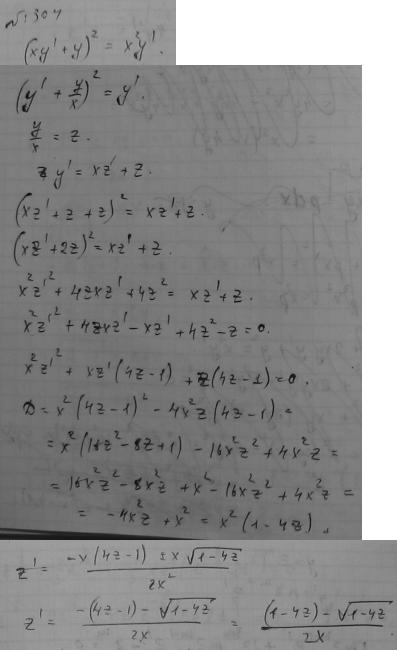 №1304
(xy' + y)² = x²y'.
(y' + y/x)² = y'.
y/x = z.
y' = xz' + z.
(xz' + z + z)² = xz' + z.
(xz' + 2z)² = xz' + z.
x²z'² + 4zxz' + 4z² = xz' + z.
x²z'² + 4zxz' - xz' + 4z² - z = 0.
x²z'² + xz'(4z-1) + z(4z-1) = 0.
D = x²(4z-1)² - 4x²z(4z-1) =
= x²(16z² - 8z + 1) - 16x²z² + 4x²z =
= 16x²z² - 8x²z + x² - 16x²z² + 4x²z =
= -4x²z + x² = x²(1-4z).
z' = (-x(4z-1) ± x√(1-4z)) / 2x²
z' = (-(4z-1) - √(1-4z)) / 2x = ((1-4z) - √(1-4z)) / 2x.